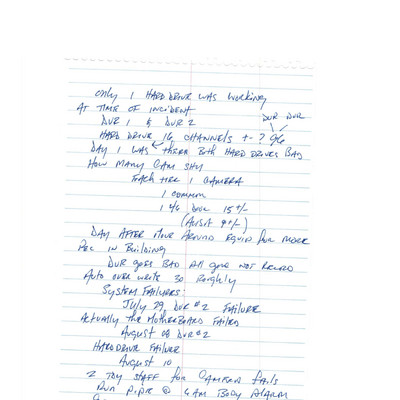 only 1 HARD DRIVE WAS WORKING
AT TIME OF INCIDENT
DVR 1 & DVR 2
DVR DVR
HARD DRIVE 16 CHANNELS +- ? 96
DAY 1 WAS THERE BOTH HARD DRIVES BAD
HOW MANY CAM SHU
EACH TIER 1 CAMERA
1 COMMON
15 +/-
9 +/-)
DAY AFTER MOVE AROUND EQUIP FOR MORE
REC IN Building
DVR goes BAD All goes NOT RECORD
Auto over write 30 Roughly
SYSTEM FAILURES:
July 29 DVR #2 FAILURE
Actually The MOTHERBOARD FAILED
August 08 DVR #2
HARDDRIVE FAILURE
August 10
2 STAFF for CAMERA FAILS
RUN @ 4 AM BODY ALARM